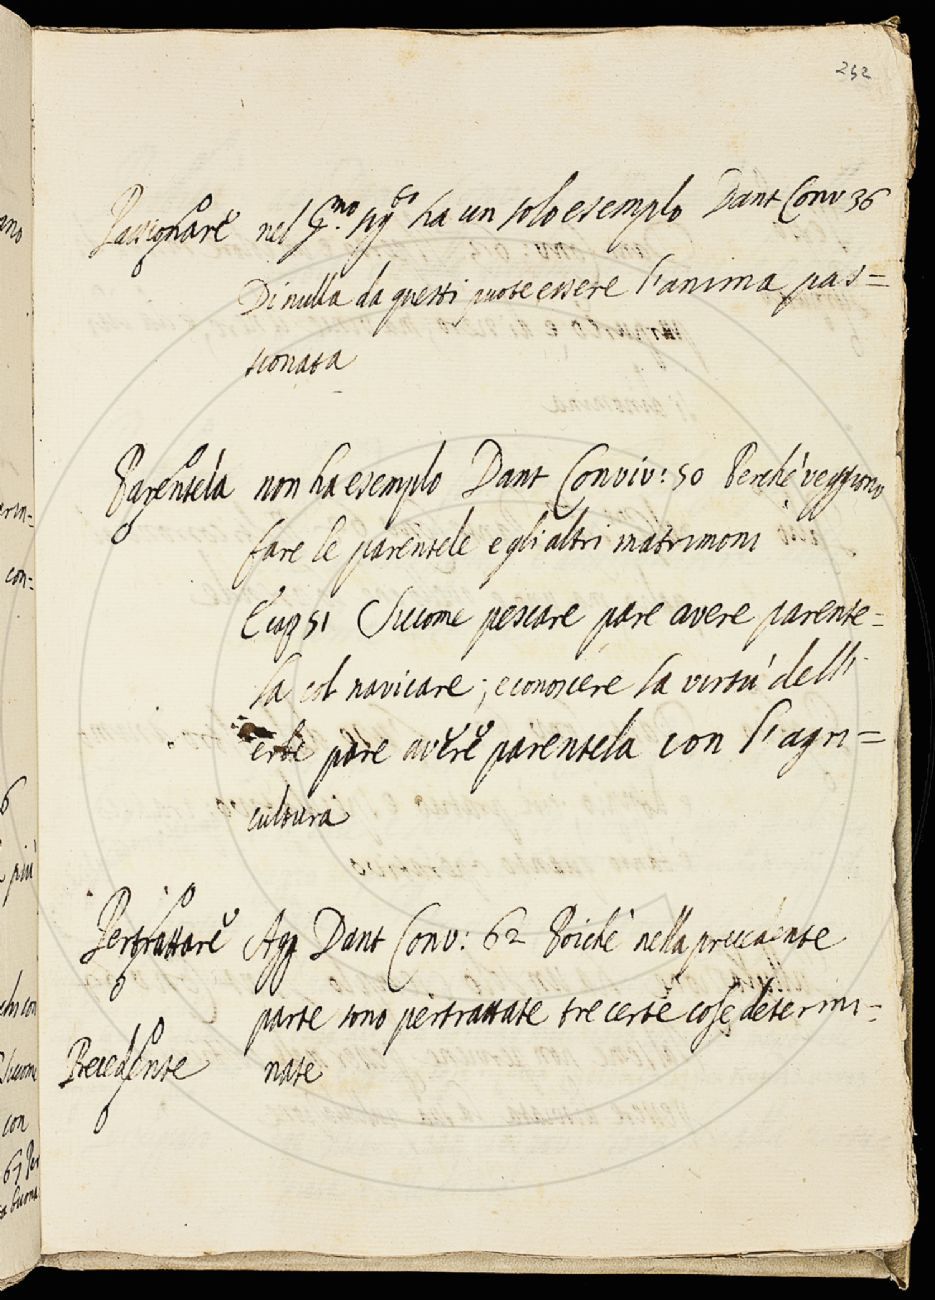 252
Passionare nel P.mo sig.to ha un solo esemplo Dant Conv 36
Di nulla da questi puote essere l'anima pas=
sionata
Parentela non ha esemplo Dant Conviv: 50 Perche' veggiono
fare le parentele e gli altri matrimoni
E cap 51 Siccome pescare pare avere parente=
la col navicare; e conoscere la virtù dell'
erbe pare avere parentela con l'agri=
cultura
Pertrattare Agg Dant Conv: 62 Poiche' nella precedente
parte sono pertrattate tre certe cose determi=
Precedente nate